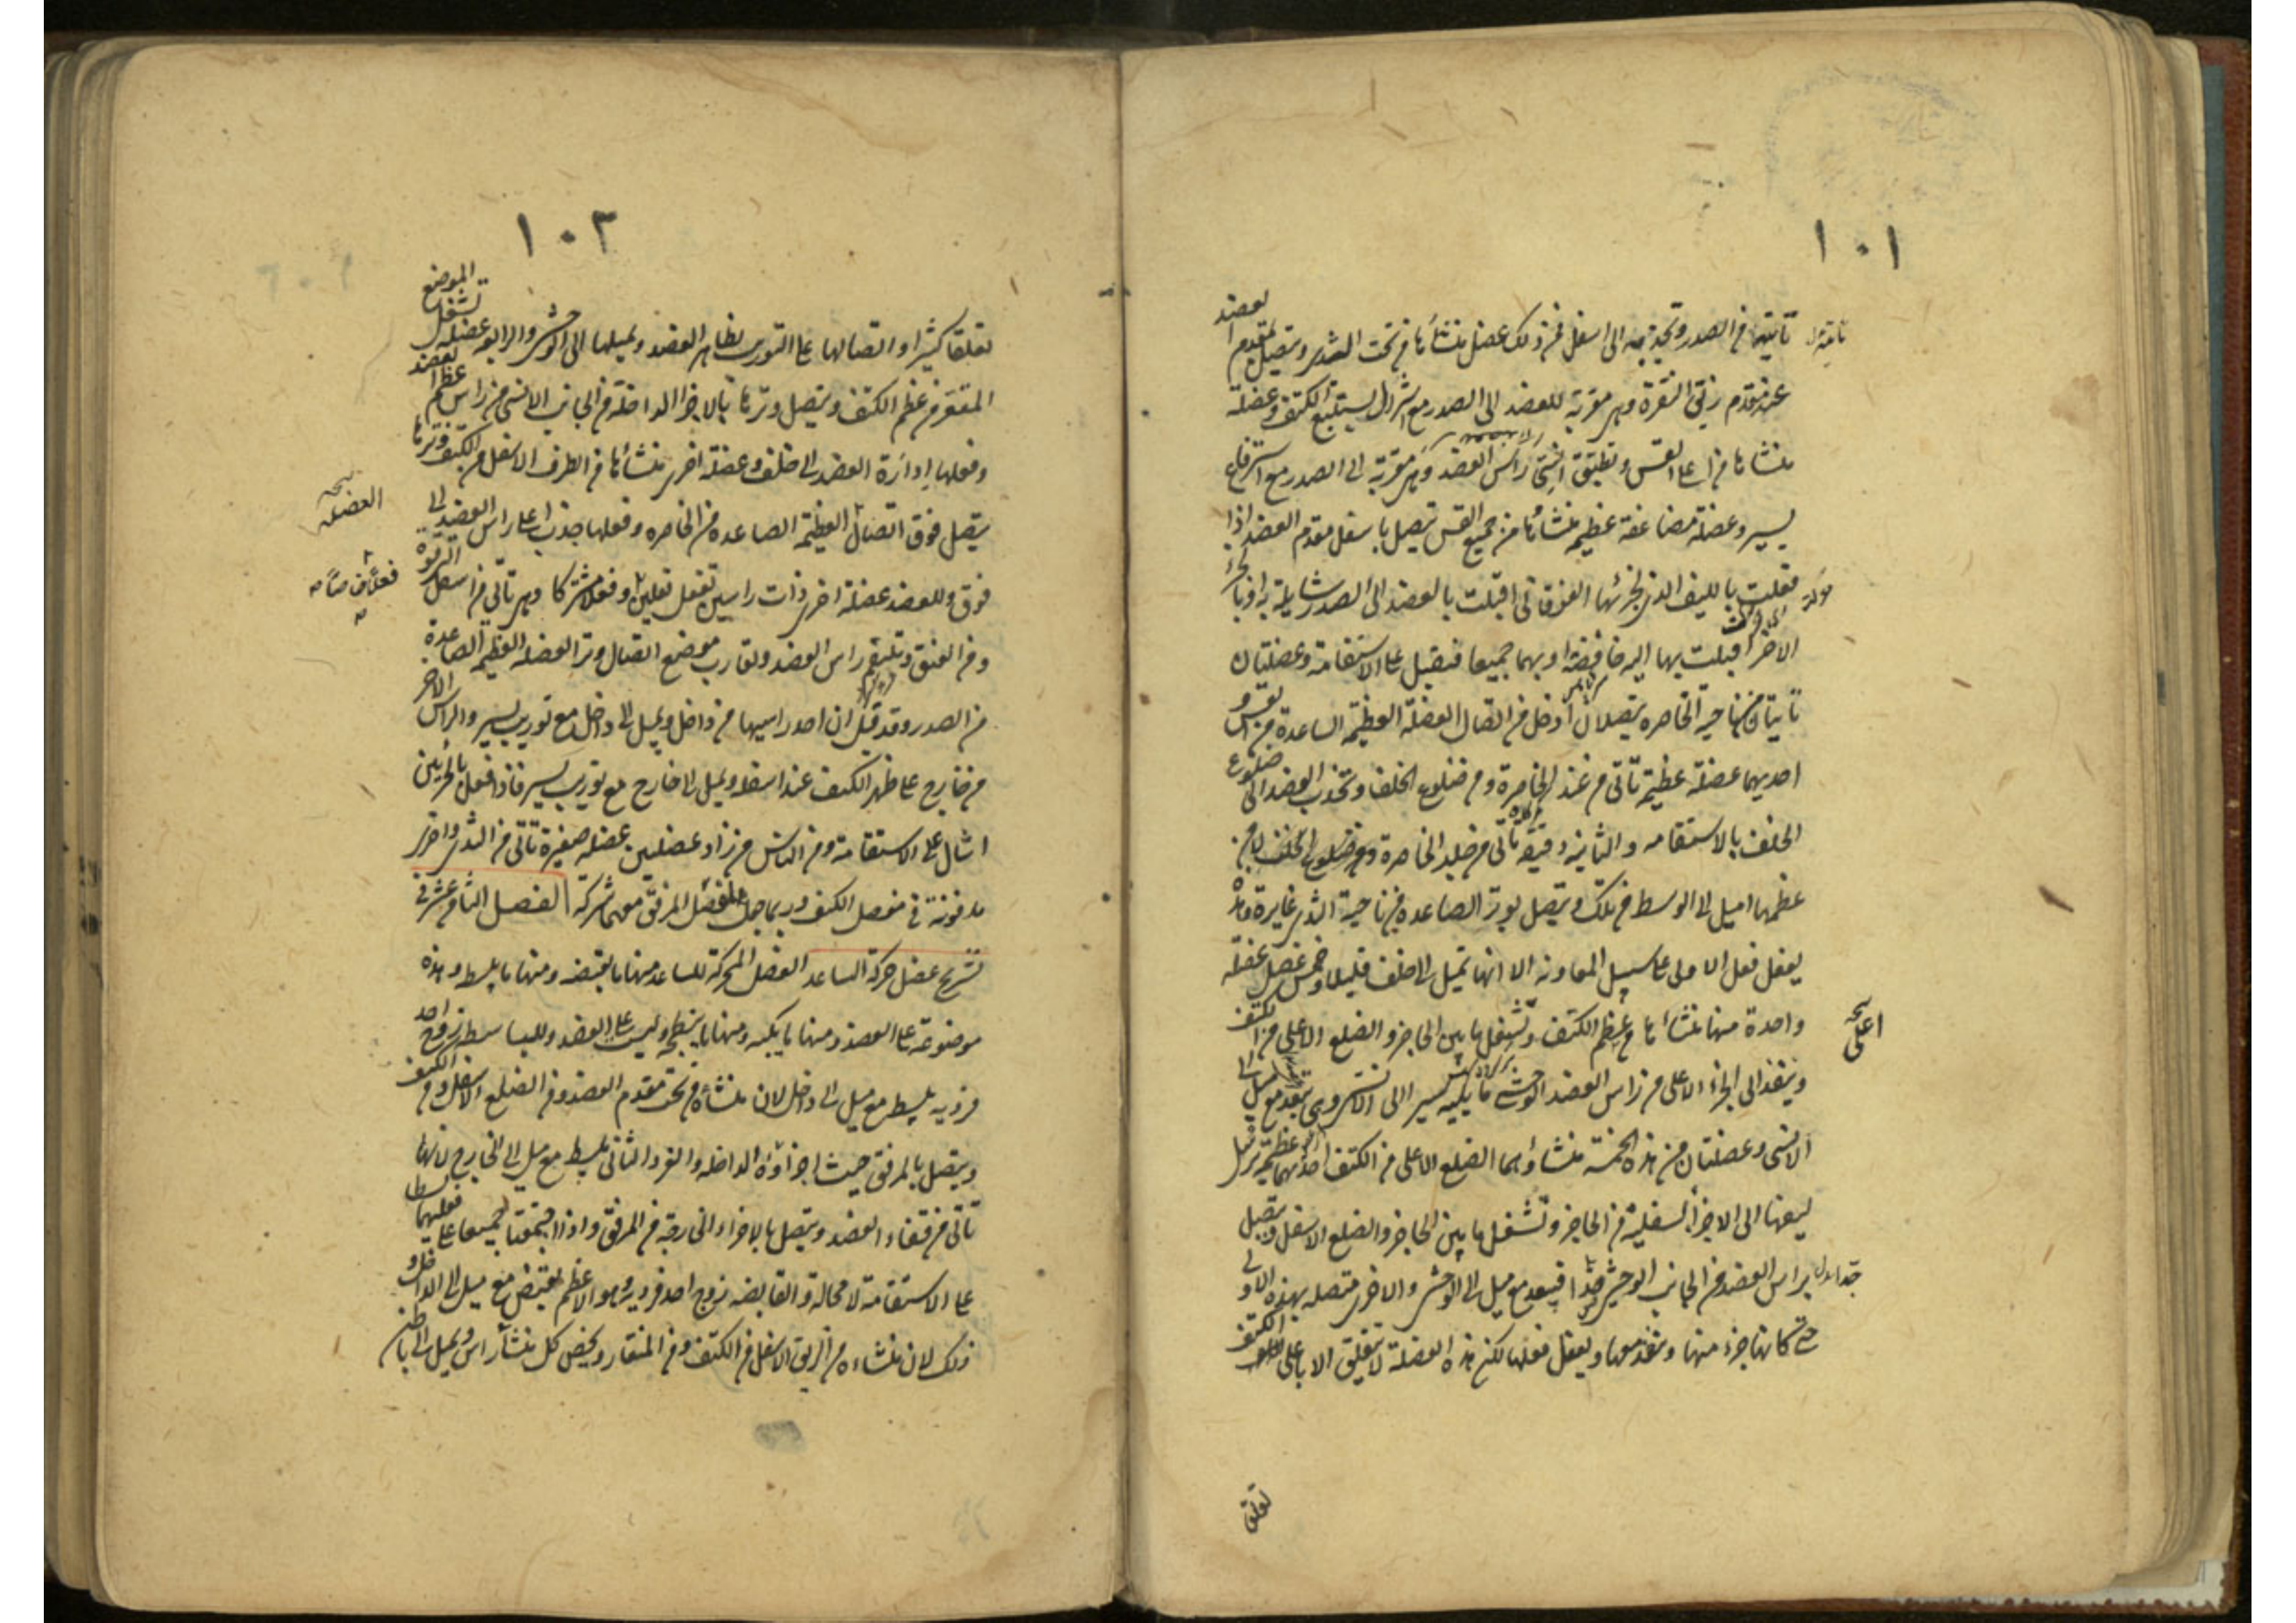 ١٠١
تأتيها من الصدر وتجذبه الى اسفل فمن ذلك عضل منشأها من تحت الثدى وتتصل بمقدم العضد
عند مقدم زيق النقرة وهى مقربة للعضد الى الصدر مع استنزال يستتبع الكتف وعضلة
منشاها من اعلى القس وتطيف انسى راس العضد وهى مقربة الى الصدر مع استرفاع
يسير وعضلة مضاعفة عظيمة منشأها من جميع القس تتصل باسفل مقدم العضد اذا
فعلت بالليف الذى لجزئها الفوقانى اقبلت بالعضد الى الصدر شايلة به او بالجزء
الاخر اقبلت بها اليه خافضة او بهما جميعا فتقبل على الاستقامة وعضلتان
تأتيان من ناحية الخاصره يتصلان ادخل من اتصال العضلة العظيمة الصاعدة من القس و
احديهما عضلة عظيمة تأتى من عند الخاصرة ومن ضلوع الخلف وتجذب العضد الى ضلوع
الخلف بالاستقامه والثانية دقيقة تأتى من جلد الخاصرة لا من
عظمها اميل الى الوسط من تلك وتتصل بوتر الصاعده من ناحية الثدى غايرة وهذه
يفعل فعل الاولى على سبيل المعاونه الا انها تميل الى خلف قليلا وخمس عضل عضلة
واحدة منها منشأها من عظم الكتف وتشغل ما بين الحاجز والضلع الاعلى من الكتف
نسخه اعلى
وينفذ الى الجزء الاعلى من راس العضد الوحشى مايلة يسير الى الانسى وهى تبعد مع ميل الى
الانسى وعضلتان من هذه الخمسة منشأهما الضلع الاعلى من الكتف احديهما عظيمة ترسل
ليفها الى الاجزاء السفلية من الحاجز وتشغل ما بين الحاجز والضلع الاسفل وتتصل
براس العضد من الجانب الوحشى جدا فيبعد مع ميل الى الوحشى والاخرى متصله بهذه الاولى
حتى كانها جزء منها وينفذ معها ويفعل فعلها لكن هذه العضلة لا تتعلق الا باعلى الكتف
تعلقا
١٠٢
تعلقا كثيرا واتصالها على التوريب بظاهر العضد وتميلها الى الوحشى والرابعه عضله تشغل الموضع
المقعر من عظم الكتف ويتصل وترها بالاجزا الداخلة من الجانب الانسى من راس عظم العضد
وفعلها ادارة العضد الى خلف وعضلة اخرى منشأها من الطرف الاسفل من الكتف ووترها
نسخه العضله
يتصل فوق اتصال العظيمة الصاعده من الخاصره وفعلها جذب اعلى راس العضد الى
فوق وللعضد عضلة اخرى ذات راسين تفعل فعلين وفعلا مشتركا وهى تأتى من اسفل الترقوة
ومن العنق وتلتقم راس العضد وتقارب موضع اتصال وتر العضله العظيمه الصاعدة
من الصدر وقد قيل ان احد راسيها من داخل ويميل الى داخل مع توريب يسير والراس الاخر
من خارج على ظهر الكتف عند اسفله ويميل الى خارج مع توريب يسير فاذا فعل بالجزئين
اشال على الاستقامة ومن الناس من زاد عضلتين عضله صغيرة تأتى من الثدى واخرى
مدفونة فى مفصل الكتف وربما جعل لعضل المرفق معهما شركة الفصل الثامن عشر فى
تشريح عضل حركة الساعد العضل المحركة للساعد منها ما يقبضه ومنها ما يبسطه وهذه
موضوعة على العضد ومنها ما يكبه ومنها ما يبطحه وليست على العضد والباسطة زوج احد
فرديه يبسط مع ميل الى داخل لان منشأه من تحت مقدم العضد ومن الضلع الاسفل من الكتف
ويتصل بالمرفق حيث اجزاؤه الداخله والفرد الثانى يبسط مع ميل الى الخارج لانها
تأتى من قفاء العضد ويتصل بالاجزاء الخارجة من المرفق واذا اجتمعتا جميعا على فعليهما بسطا
على الاستقامة لا محالة والقابضه زوج احد فرديه وهو الاعظم يقبض مع ميل الى الداخل و
ذلك لان منشاءه من الزيق الاسفل من الكتف ومن المنقار ويخص كل منشأ راس ويميل الى باطن